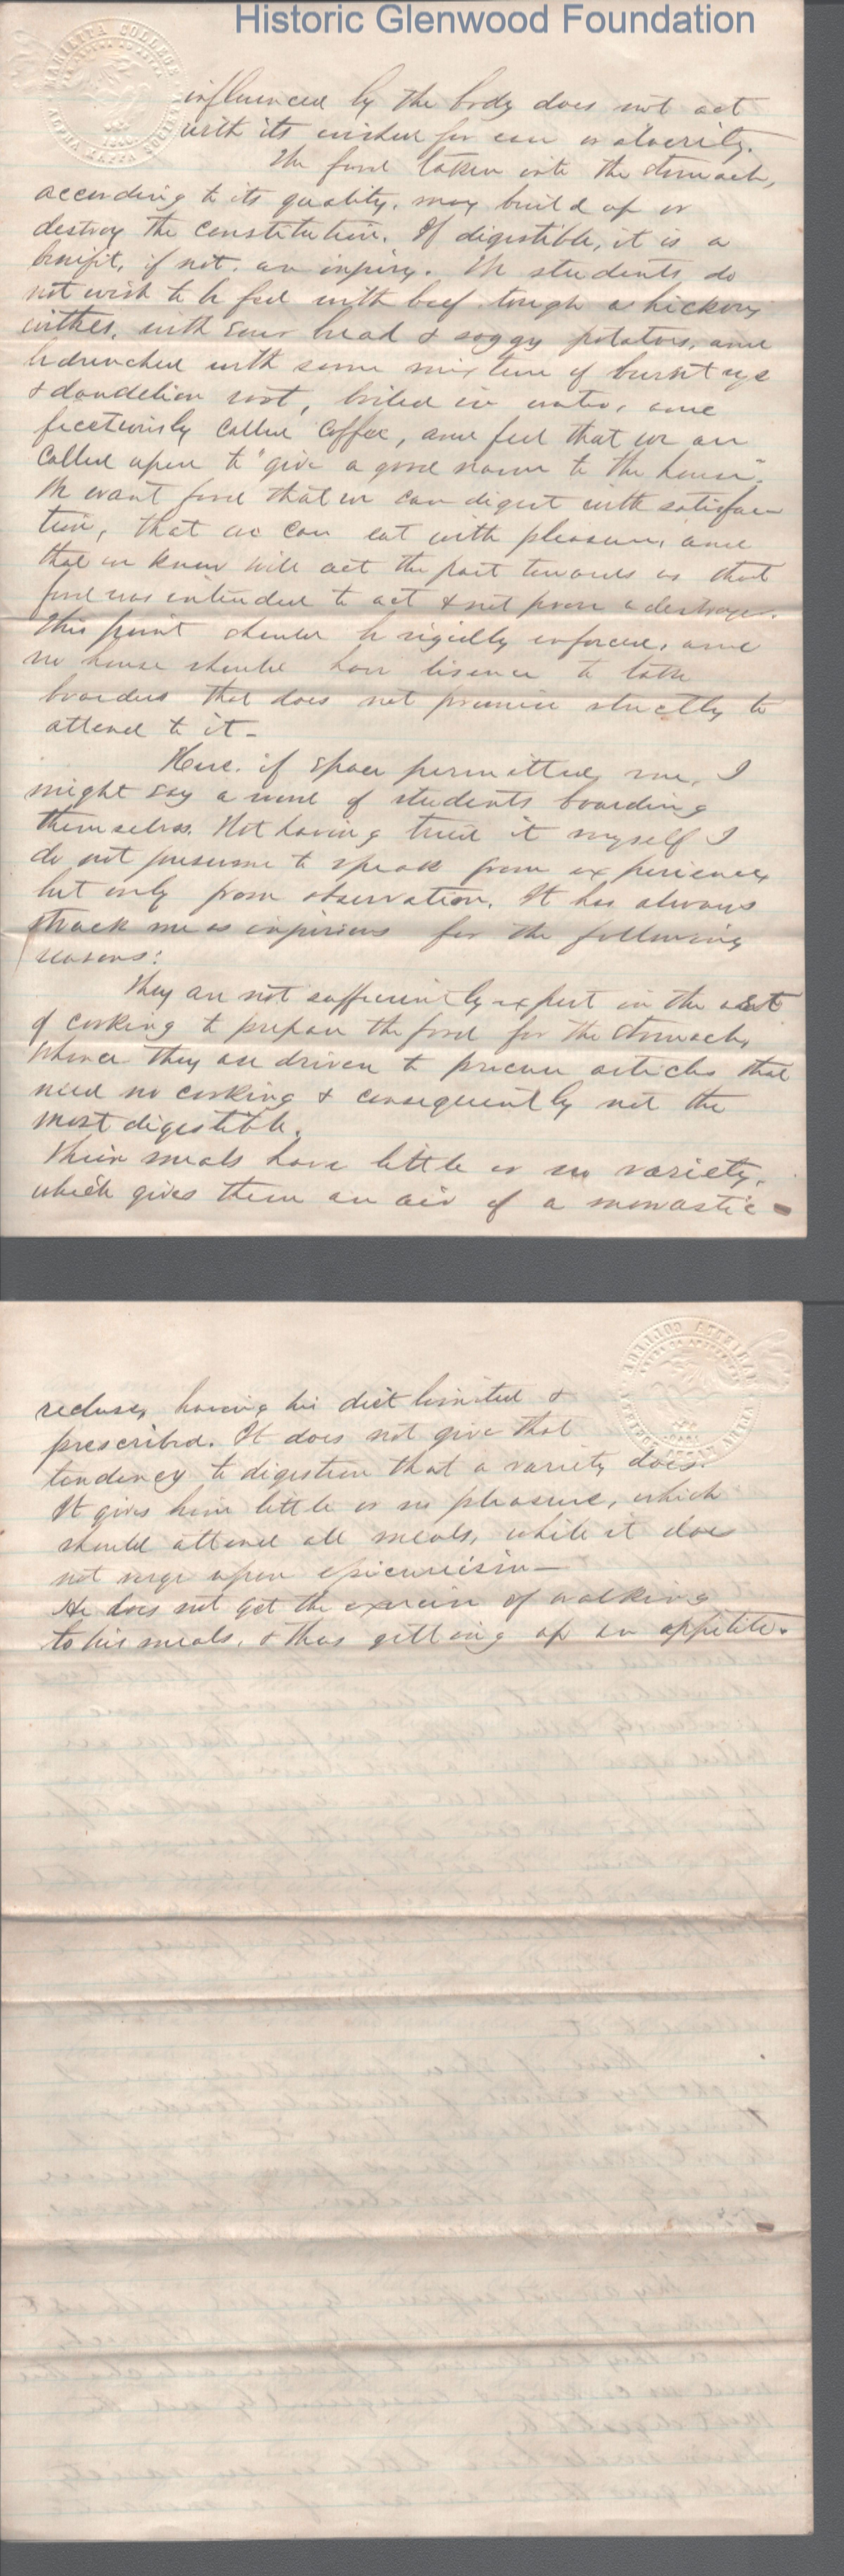 Historic Glenwood Foundation
MARIETTA COLLEGE
ALPHA KAPPA SOCIETY
influenced by the body does not act
with its wished for ease or alacrity.
The food taken into the stomach,
according to its quality, may build up or
destroy the constitution. If digestible, it is a
benifit, if not, an injury. We students do
not wish to be fed with beef tough as hickory
withes, with sour bread & soggy potatoes, and
be drenched with some mixture of burnt rye
& dandelion root, boiled in water, and
facetiously called coffee, and feel that we are
called upon to "give a good name to the house".
We want food that we can digest with satisfac
tion, that we can eat with pleasure, and
that we know will act the part towards us that
food was intended to act & not prove a destroyer.
This point should be rigidly enforced, and
no house should have lisence to take
boarders that does not promise strictly to
attend to it —
Here, if space permitted me, I
might say a word of students boarding
themselves. Not having tried it myself I
do not presume to speak from experience,
but only from observation. It has always
struck me as injurious for the following
reasons:
They are not sufficiently expert in the art
of cooking to prepare the food for the stomach,
whence they are driven to procure articles that
need no cooking & consequently not the
most digestible.
Their meals have little or no variety,
which gives them an air of a monastic
recluse, having his diet limited &
prescribed. It does not give that
tendency to digestion that a variety does.
It gives him little or no pleasure, which
should attend all meals, while it does
not verge upon epicureism —
He does not get the exercise of walking
to his meals, & thus getting up an appetite.